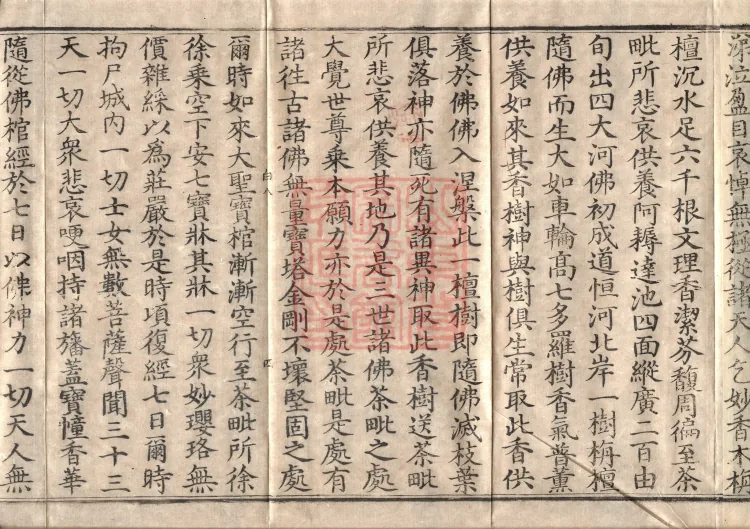 深泣盈目哀悼無極從諸天人乞妙香木栴
檀沉水足六千根文理香潔芬馥周徧至茶
毗所悲哀供養阿耨達池四面縱廣二百由
旬出四大河佛初成道恒河北岸一樹栴檀
隨佛而生大如車輪高七多羅樹香氣普薰
供養如來其香樹神與樹俱生常取此香供
養於佛佛入涅槃此一檀樹即隨佛滅枝葉
俱落神亦隨死有諸異神取此香樹送茶毗
所悲哀供養其地乃是三世諸佛茶毗之處
大覺世尊乘本願力亦於是處茶毗是處有
諸往古諸佛無量寶塔金剛不壞堅固之處
爾時如來大聖寶棺漸漸空行至茶毗所徐
徐乘空下安七寶牀其牀一切眾妙瓔珞無
價雜綵以為莊嚴於是時頃復經七日爾時
拘尸城內一切士女無數菩薩聲聞三十三
天一切大眾悲哀哽咽持諸旛蓋寶幢香華
隨從佛棺經於七日以佛神力一切天人無